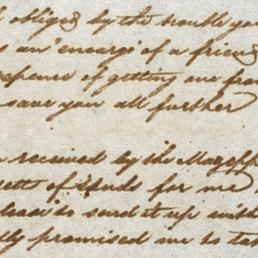 obliged by the trouble you
is an encargo of a friend
expence of getting one from
save you all further
received by the Mazeppa
of Seeds for me
to send it up with
promised me to take